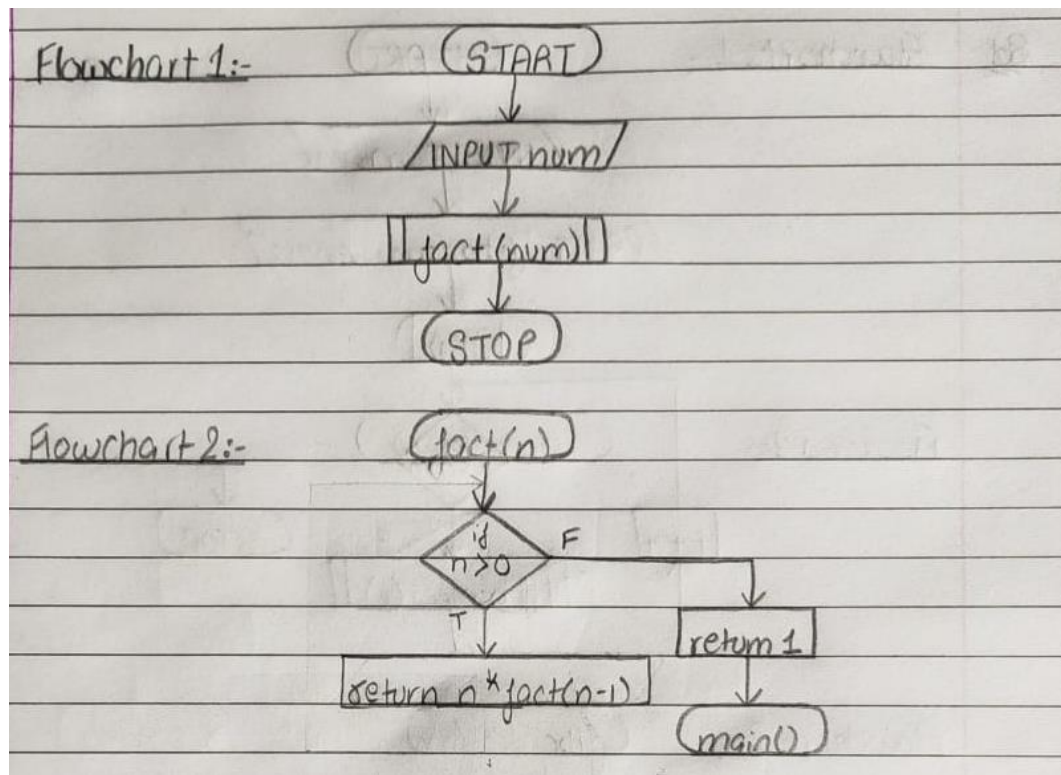 Flowchart 1:- START
INPUT num
fact(num)
STOP
Flowchart 2:- fact(n)
if
n>0 F
T
return 1
return n*fact(n-1)
main()